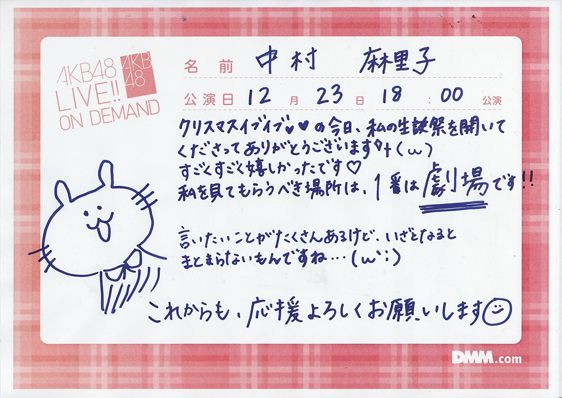 AKB48
LIVE!!
ON DEMAND
AKB
48
名前 中村 麻里子
公演日 12月23日 18:00 公演
クリスマスイブイブ♥♥の今日、私の生誕祭を開いて
くださってありがとうございます(ω)
すごくすごく嬉しかったです♡
私を見てもらうべき場所は、1番は劇場です!!
言いたいことがたくさんあるけど、いざとなると
まとまらないもんですね…(ω`;)
これからも、応援よろしくお願いします
DMM.com